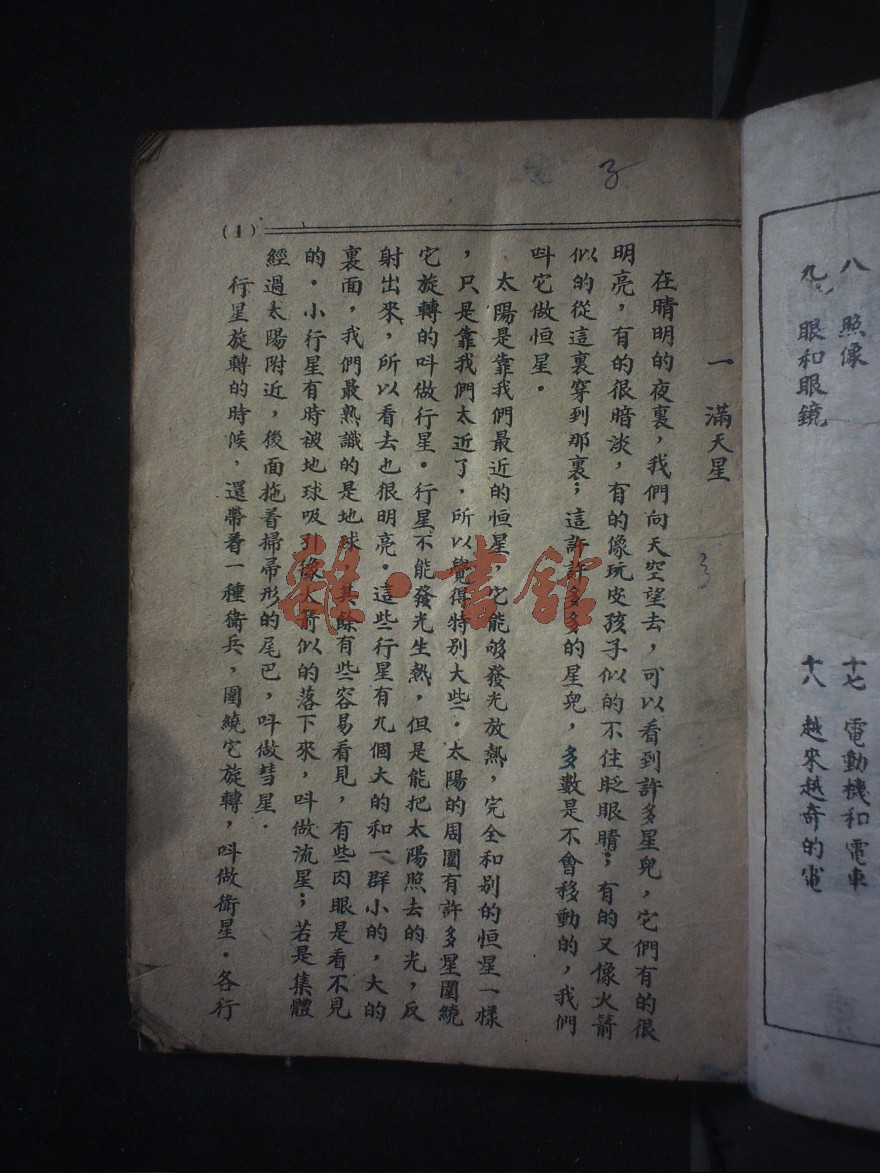 八　照像
九　眼和眼鏡
十七　電動機和電車
十八　越來越奇的電
一　滿天星
在晴明的夜裏，我們向天空望去，可以看到許多星兒，它們有的很
明亮，有的很暗淡，有的像玩皮孩子似的不住眨眼睛；有的又像火箭
似的從這裏穿到那裏；這許許多多的星兒，多數是不會移動的，我們
叫它做恒星。
太陽是靠我們最近的恒星，它能够發光放熱，完全和別的恒星一樣
，只是靠我們太近了，所以覺得特別大些。太陽的周圍有許多星圍繞
它旋轉的叫做行星。行星不能發光生熱，但是能把太陽照去的光，反
射出來，所以看去也很明亮。這些行星有九個大的和一群小的，大的
裏面，我們最熟識的是地球，其餘有些容易看見，有些肉眼是看不見
的。小行星有時被地球吸引像火箭似的落下來，叫做流星；若是集體
經過太陽附近，後面拖着掃帚形的尾巴，叫做彗星。
行星旋轉的時候，還帶着一種衛兵，圍繞它旋轉，叫做衛星。各行
(1)
3
3
雜·書館